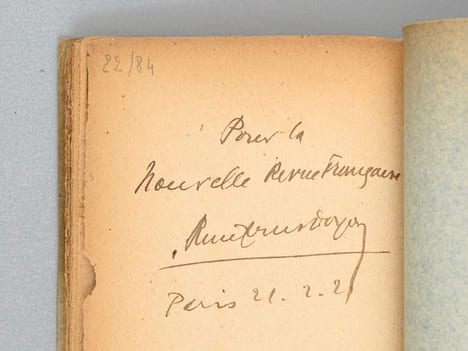 22/84
Pour la
Nouvelle Revue Française
ReneLouis Doyon
Paris 21. 2. 21